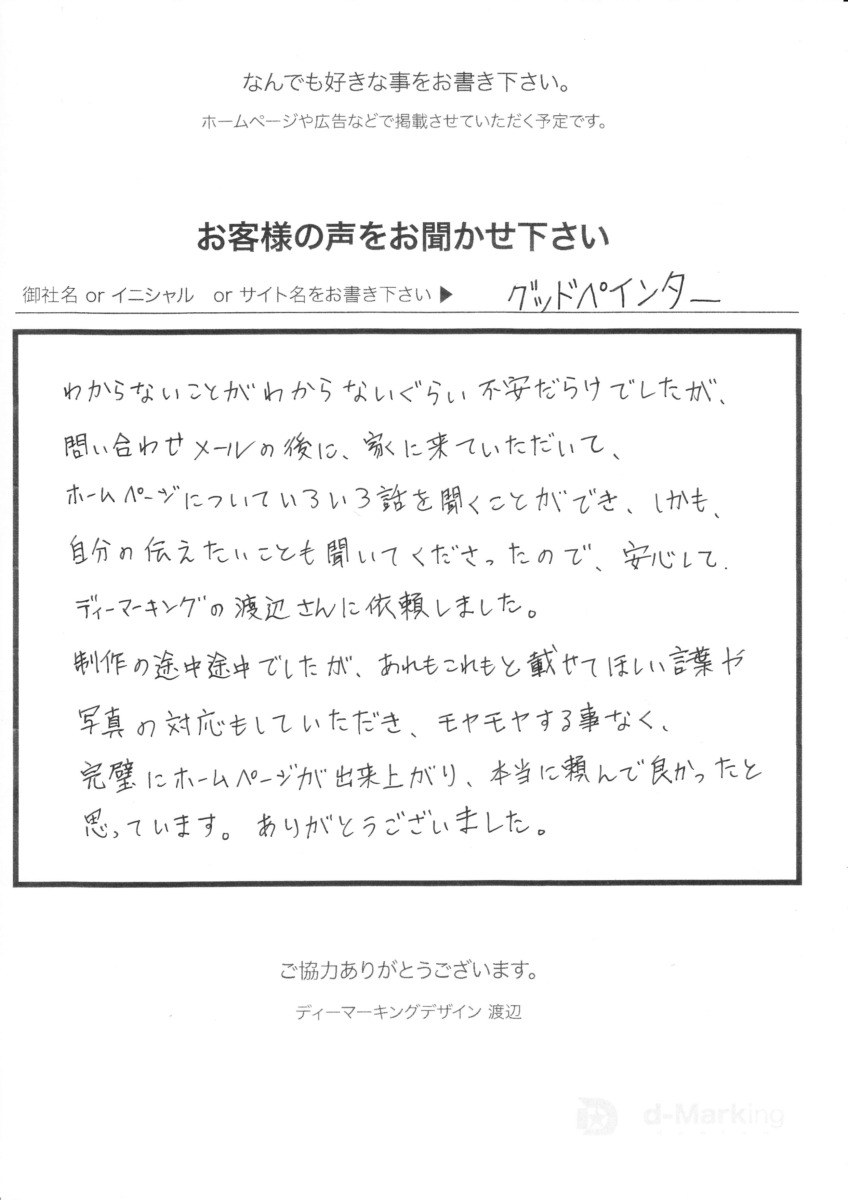 なんでも好きな事をお書き下さい。
ホームページや広告などで掲載させていただく予定です。
お客様の声をお聞かせ下さい
御社名 or イニシャル or サイト名をお書き下さい▶ グッドペインター
わからないことがわからないぐらい不安だらけでしたが、
問い合わせメールの後に、家に来ていただいて、
ホームページについていろいろ話を聞くことができ、しかも、
自分の伝えたいことも聞いてくださったので、安心して
ディーマーキングの渡辺さんに依頼しました。
制作の途中途中でしたが、あれもこれもと載せてほしい言葉や
写真の対応もしていただき、モヤモヤする事なく、
完璧にホームページが出来上がり、本当に頼んで良かったと
思っています。ありがとうございました。
ご協力ありがとうございます。
ディーマーキングデザイン 渡辺
d-Marking